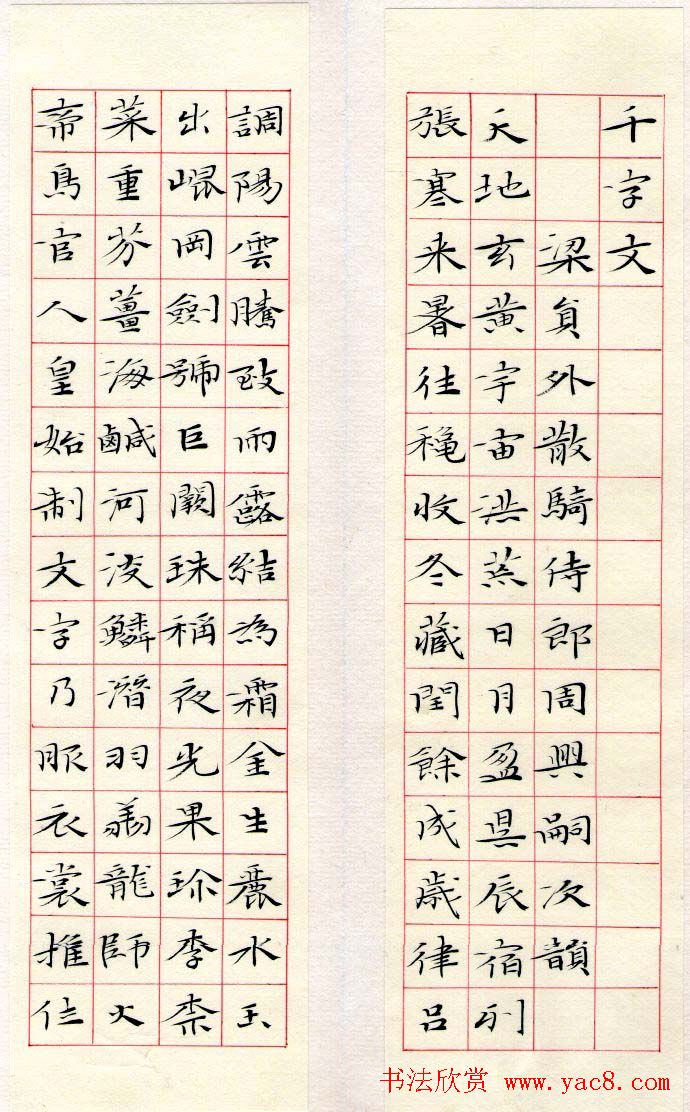 千字文
梁員外散騎侍郎周興嗣次韻
天地玄黃宇宙洪荒日月盈昃辰宿列
張寒来暑往秋收冬藏閏餘成歲律呂
調陽雲騰致雨露結為霜金生麗水玉
出崐岡劍號巨闕珠稱夜光果珍李柰
菜重芥薑海鹹河淡鱗潛羽翔龍師火
帝鳥官人皇始制文字乃服衣裳推位
书法欣赏 www.yac8.com